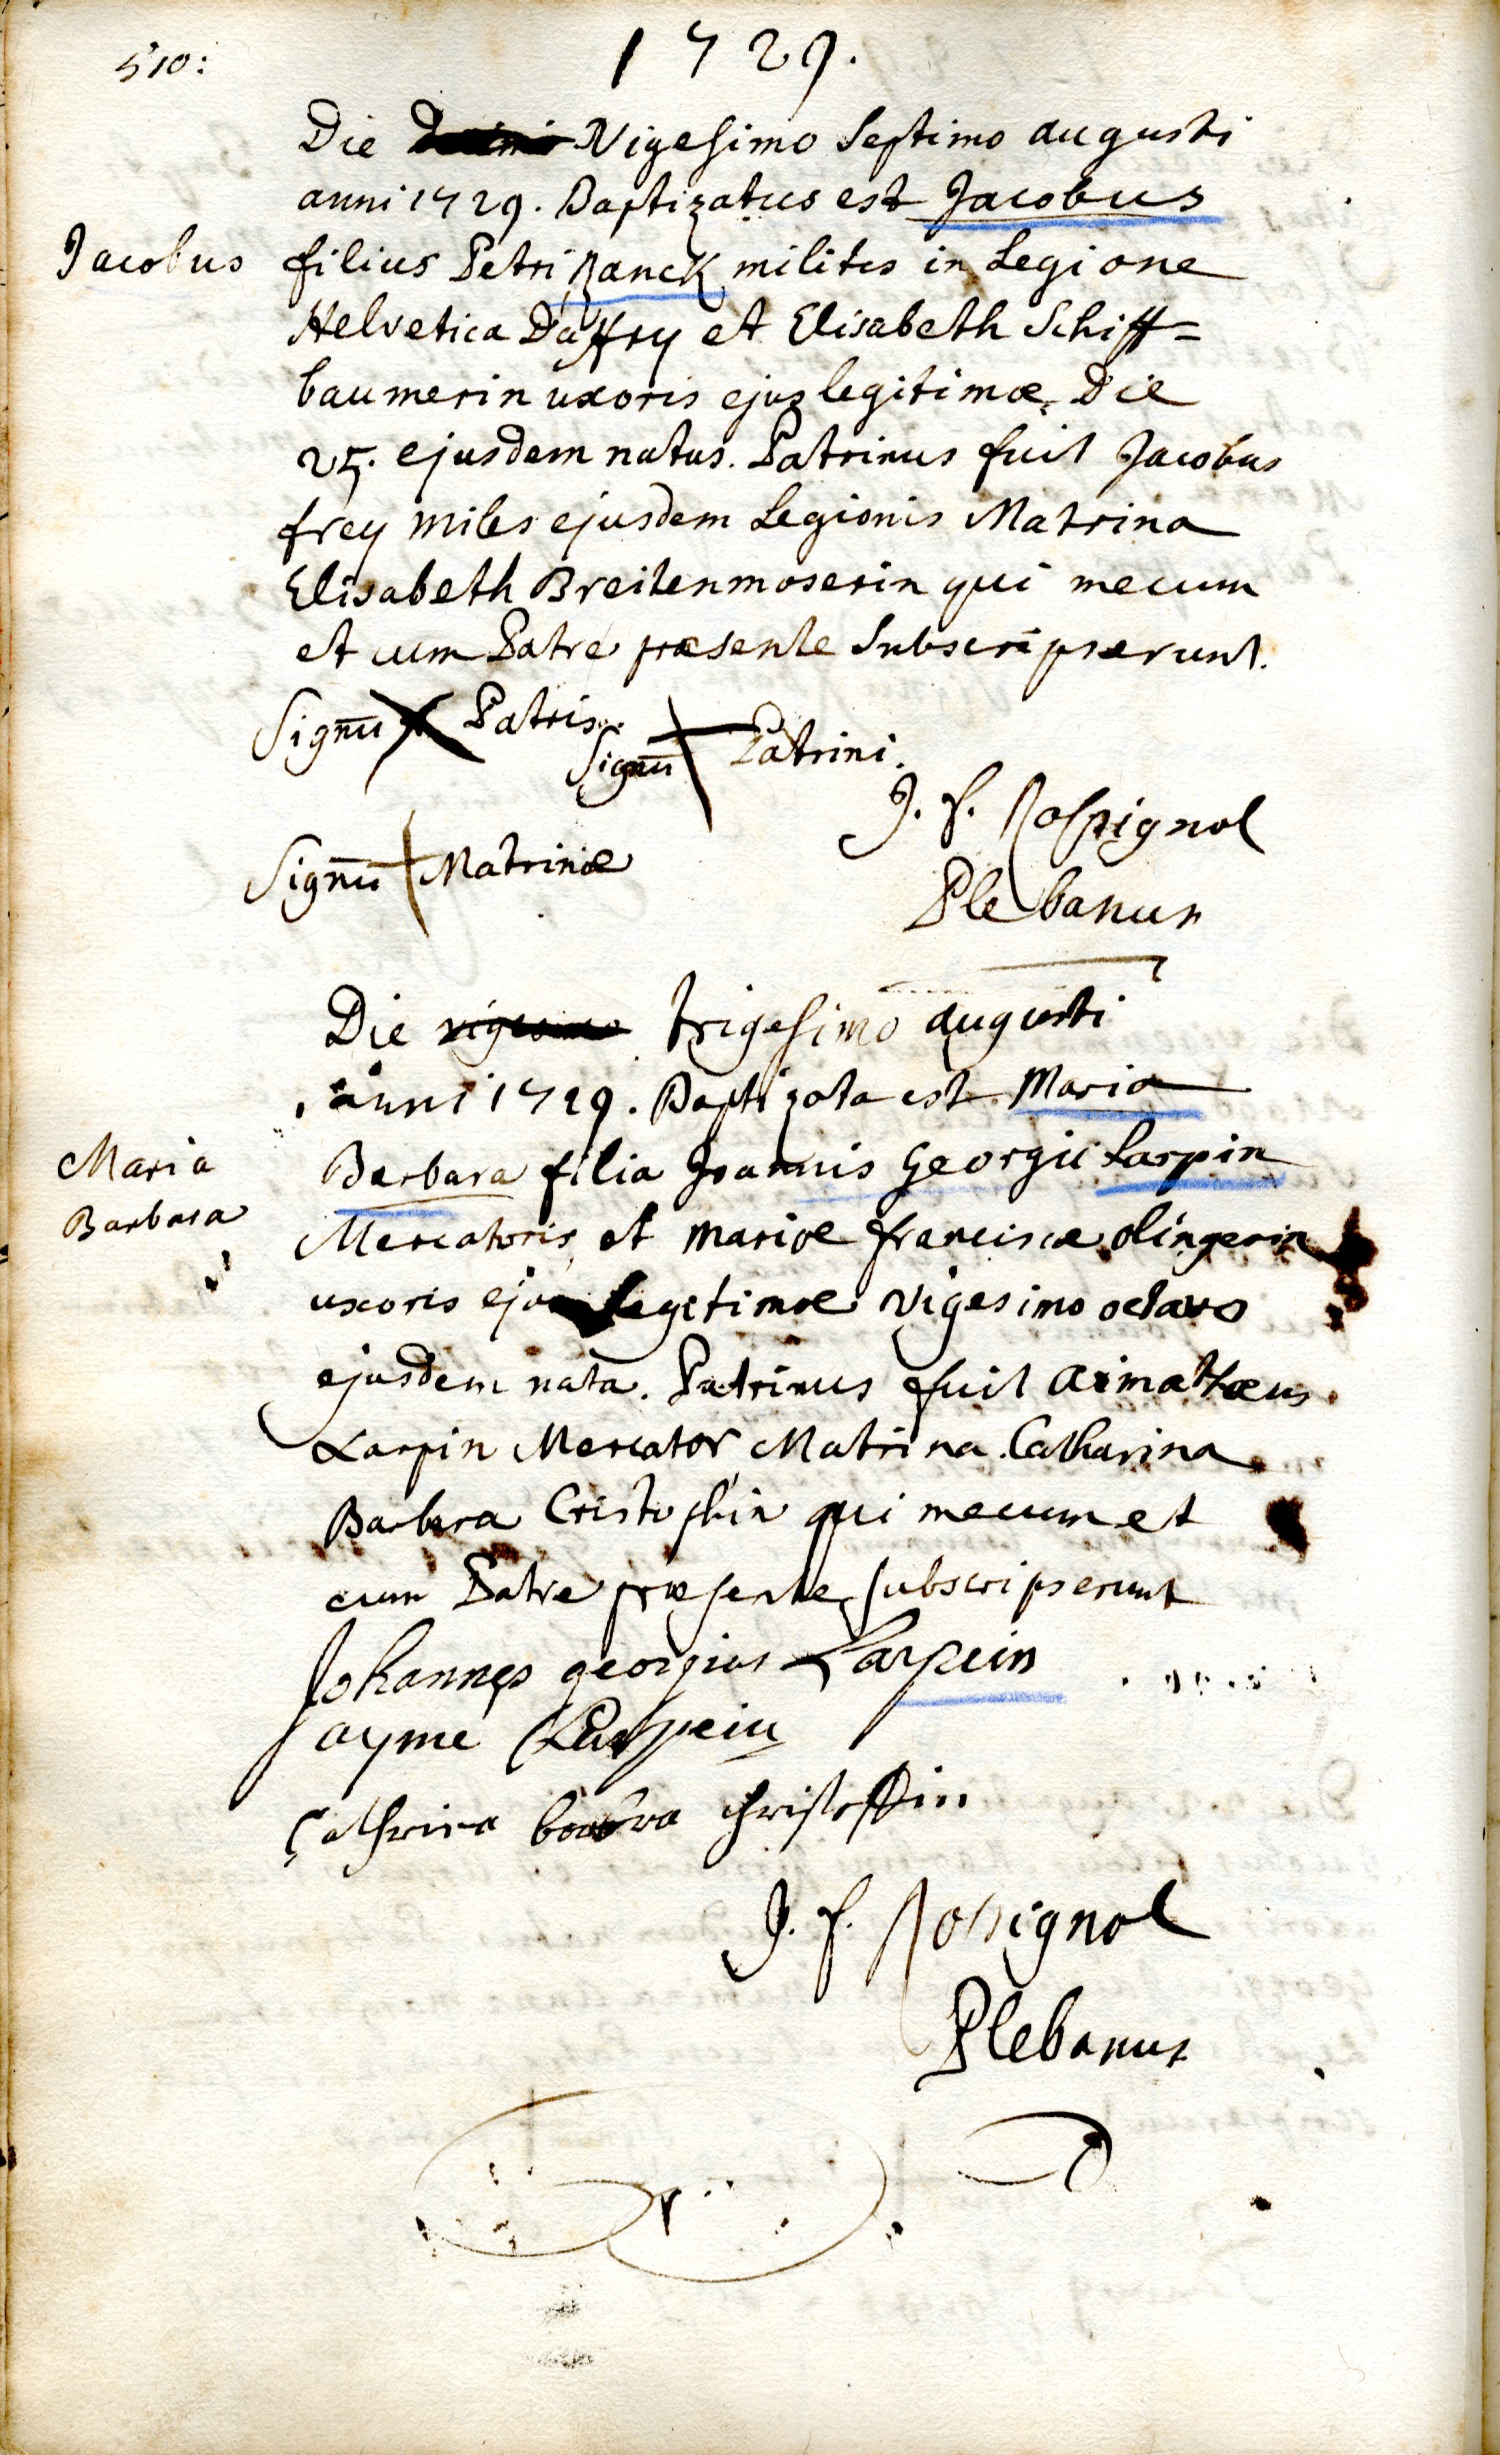 510:
1729.
Die Vigesimo Septimo augusti
anni 1729. Baptizatus est Jacobus
Jacobus
filius Petri Zanck militis in Legione
Helvetica D'affry et Elisabeth Schiff=
baumerin uxoris ejus legitimæ, Die
25. ejusdem natus. Patrinus fuit Jacobus
frey miles ejusdem Legionis Matrina
Elisabeth Breitenmoserin qui mecum
et cum Patre præsente Subscripserunt.
Signū Patris
Signū Patrini.
J. f. Rossignol
Signū Matrinæ
Plebanus
Die vigesimo trigesimo augusti
anni 1729. Baptizata est Maria
Maria
Barbara
Barbara filia Joannis Georgii Larpin
Mercatoris et mariæ franciscæ olingerin
uxoris ejus legitimæ vigesimo octavo
ejusdem nata. Patrinus fuit
Larpin Mercator Matrina Catharina
Barbara Cristophin qui mecum et
cum Patre præsente subscripserunt
Johannes georgius Larpein
ayme Larpein
Cathrina barbra christoffin
J. f. Rossignol
Plebanus